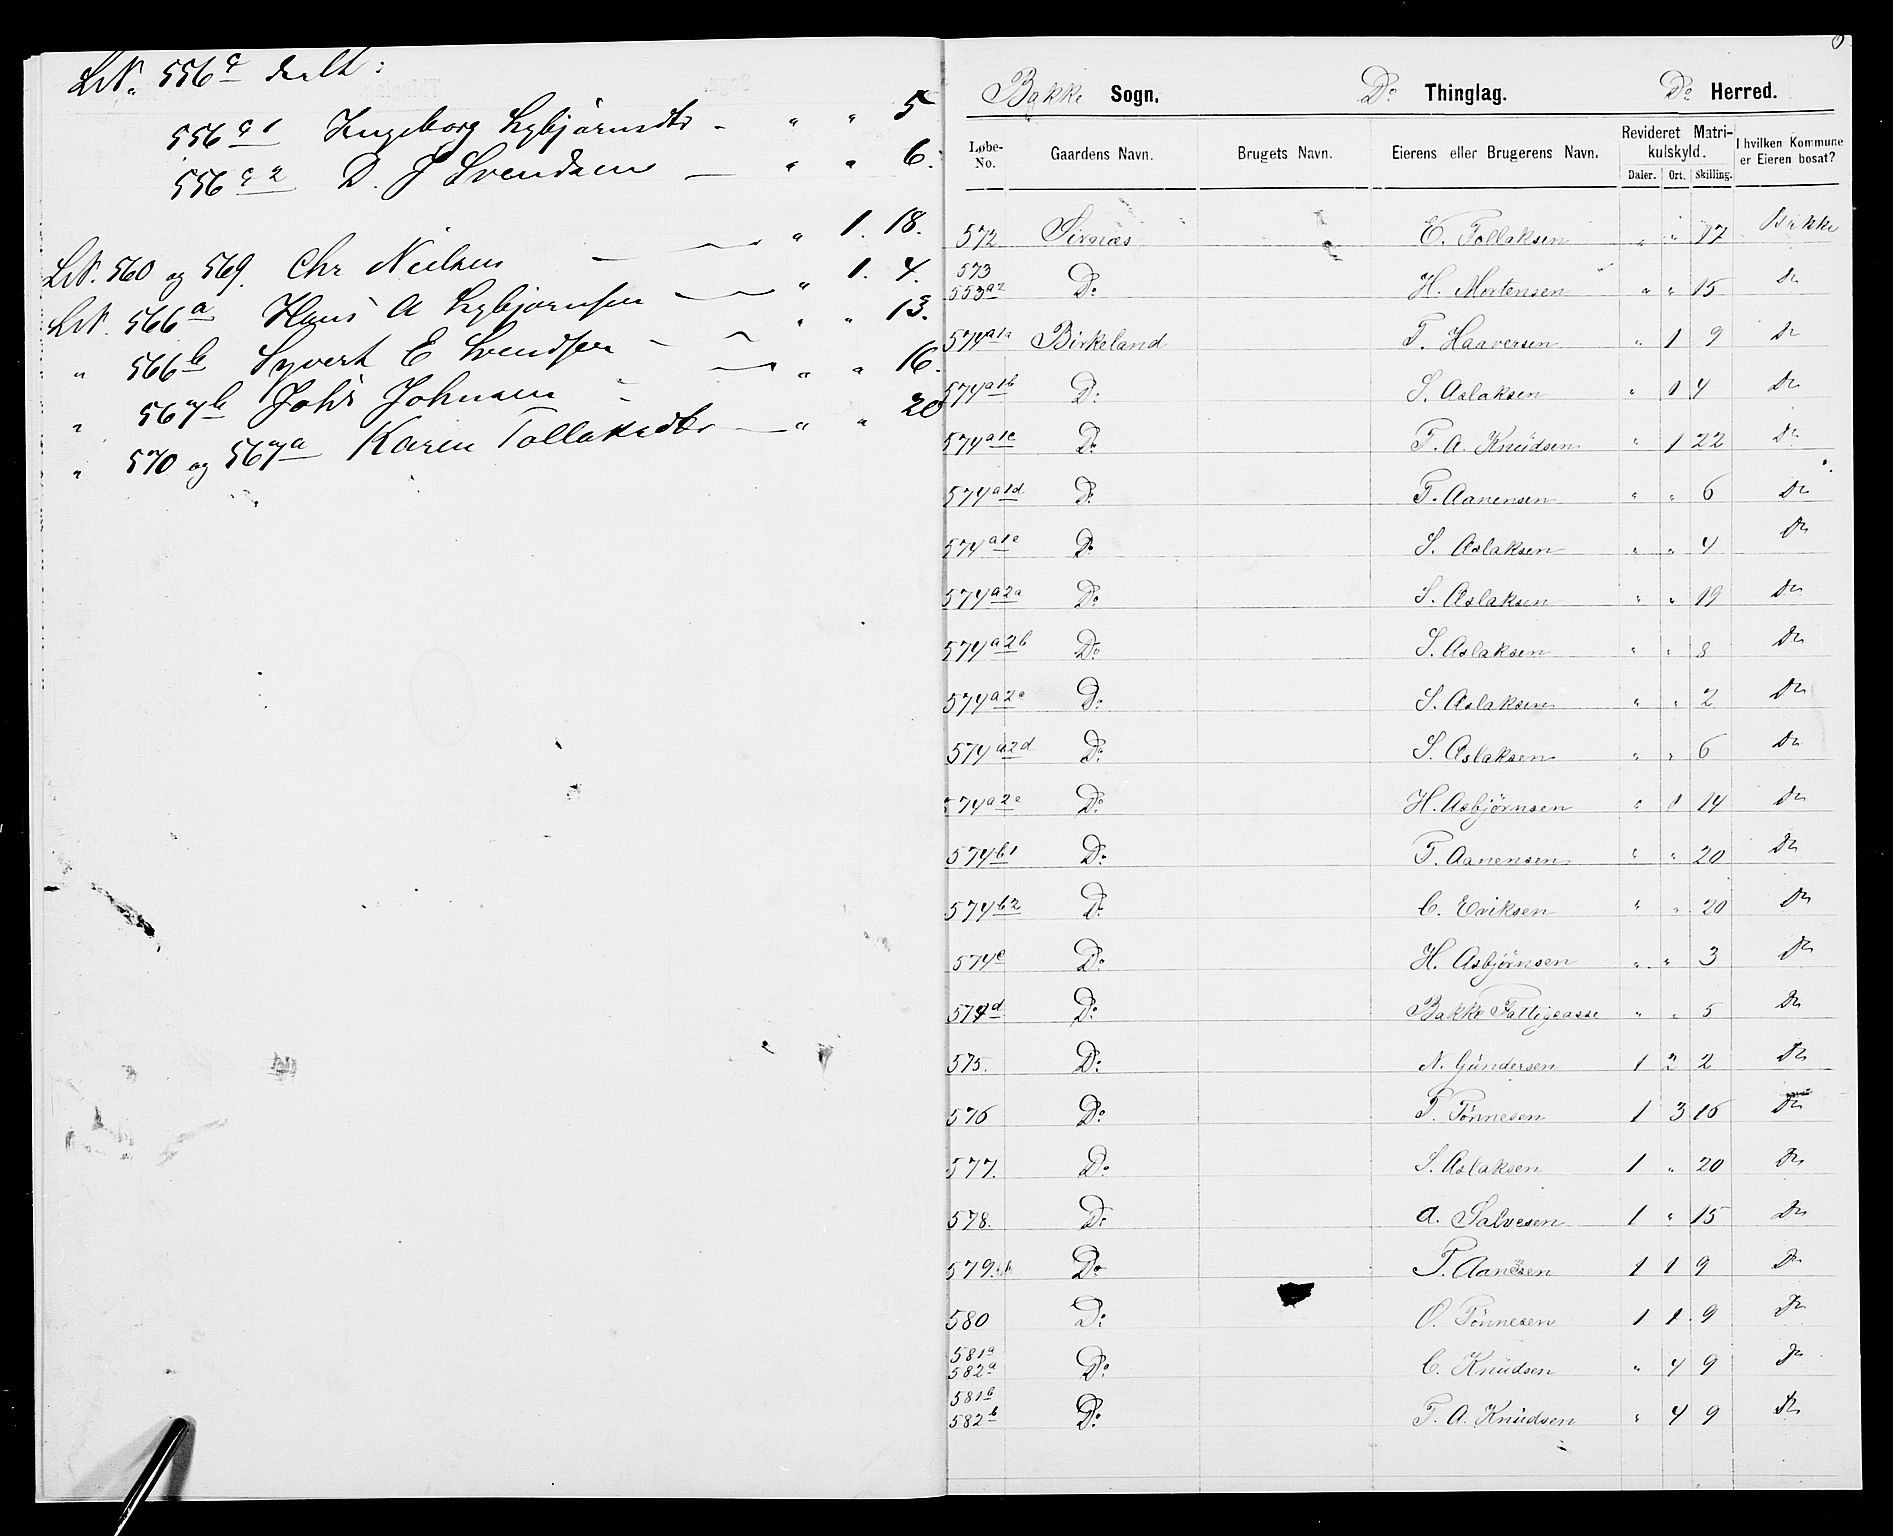 LN. 556c delt:
556c1 Ingeborg Esbjørnsdtr - " " 5
556c2 D. J Svendsen — " " 6.
LN. 560 og 569. Chr Nielsen — " 1. 18.
LN. 566a Hans A Esbjørnsen — " 1. 4.
" 566b Syvert E Svendsen - " " 13.
" 567b Johs Johnsen - " " 16.
" 570 og 567a Karen Tollaksdtr — " " 20
Bakke Sogn. Do Thinglag. Do Herred.
Løbe-No. Gaardens Navn. Brugets Navn. Eierens eller Brugerens Navn. Revideret Matrikulskyld. Daler. Ort. Skilling. I hvilken Kommune er Eieren bosat?
572 Sirnæs E. Tollaksen " " 17 Bakke
573 553a2 Do H. Mortensen " " 15 Do
574a1a Birkeland T. Haaversen " 1 9 Do
574a1b Do S. Aslaksen " 1 4 Do
574a1c Do T. A. Knudsen " 1 22 Do
574a1d Do T. Aanensen " " 6 Do
574a1e Do S. Aslaksen " " 4 Do
574a2a Do S. Aslaksen " " 19 Do
574a2b Do S. Aslaksen " " 8 Do
574a2c Do S. Aslaksen " " 2 Do
574a2d Do S. Aslaksen " " 6 Do
574a2e Do H. Asbjörnsen " 1 14 Do
574b1 Do T. Aanensen " " 20 Do
574b2 Do C. Eriksen " " 20 Do
574c Do H. Asbjörnsen " " 3 Do
574d Do Bakke Fattigcasse " " 5 Do
575. Do N. Gundersen 1 2 2 Do
576 Do T. Tönnesen 1 3 16 Do
577. Do S. Aslaksen 1 " 20 Do
578. Do A. Salvesen 1 " 15 Do
579. Do T. Aanesen 1 1 9 Do
580 Do O. Tönnesen 1 1 9 Do
581a 582a Do C. Knudsen " 4 9 Do
581b 582b Do T. A. Knudsen " 4 9 Do